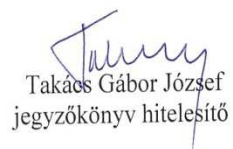 Takács Gábor József
jegyzőkönyv hitelesítő